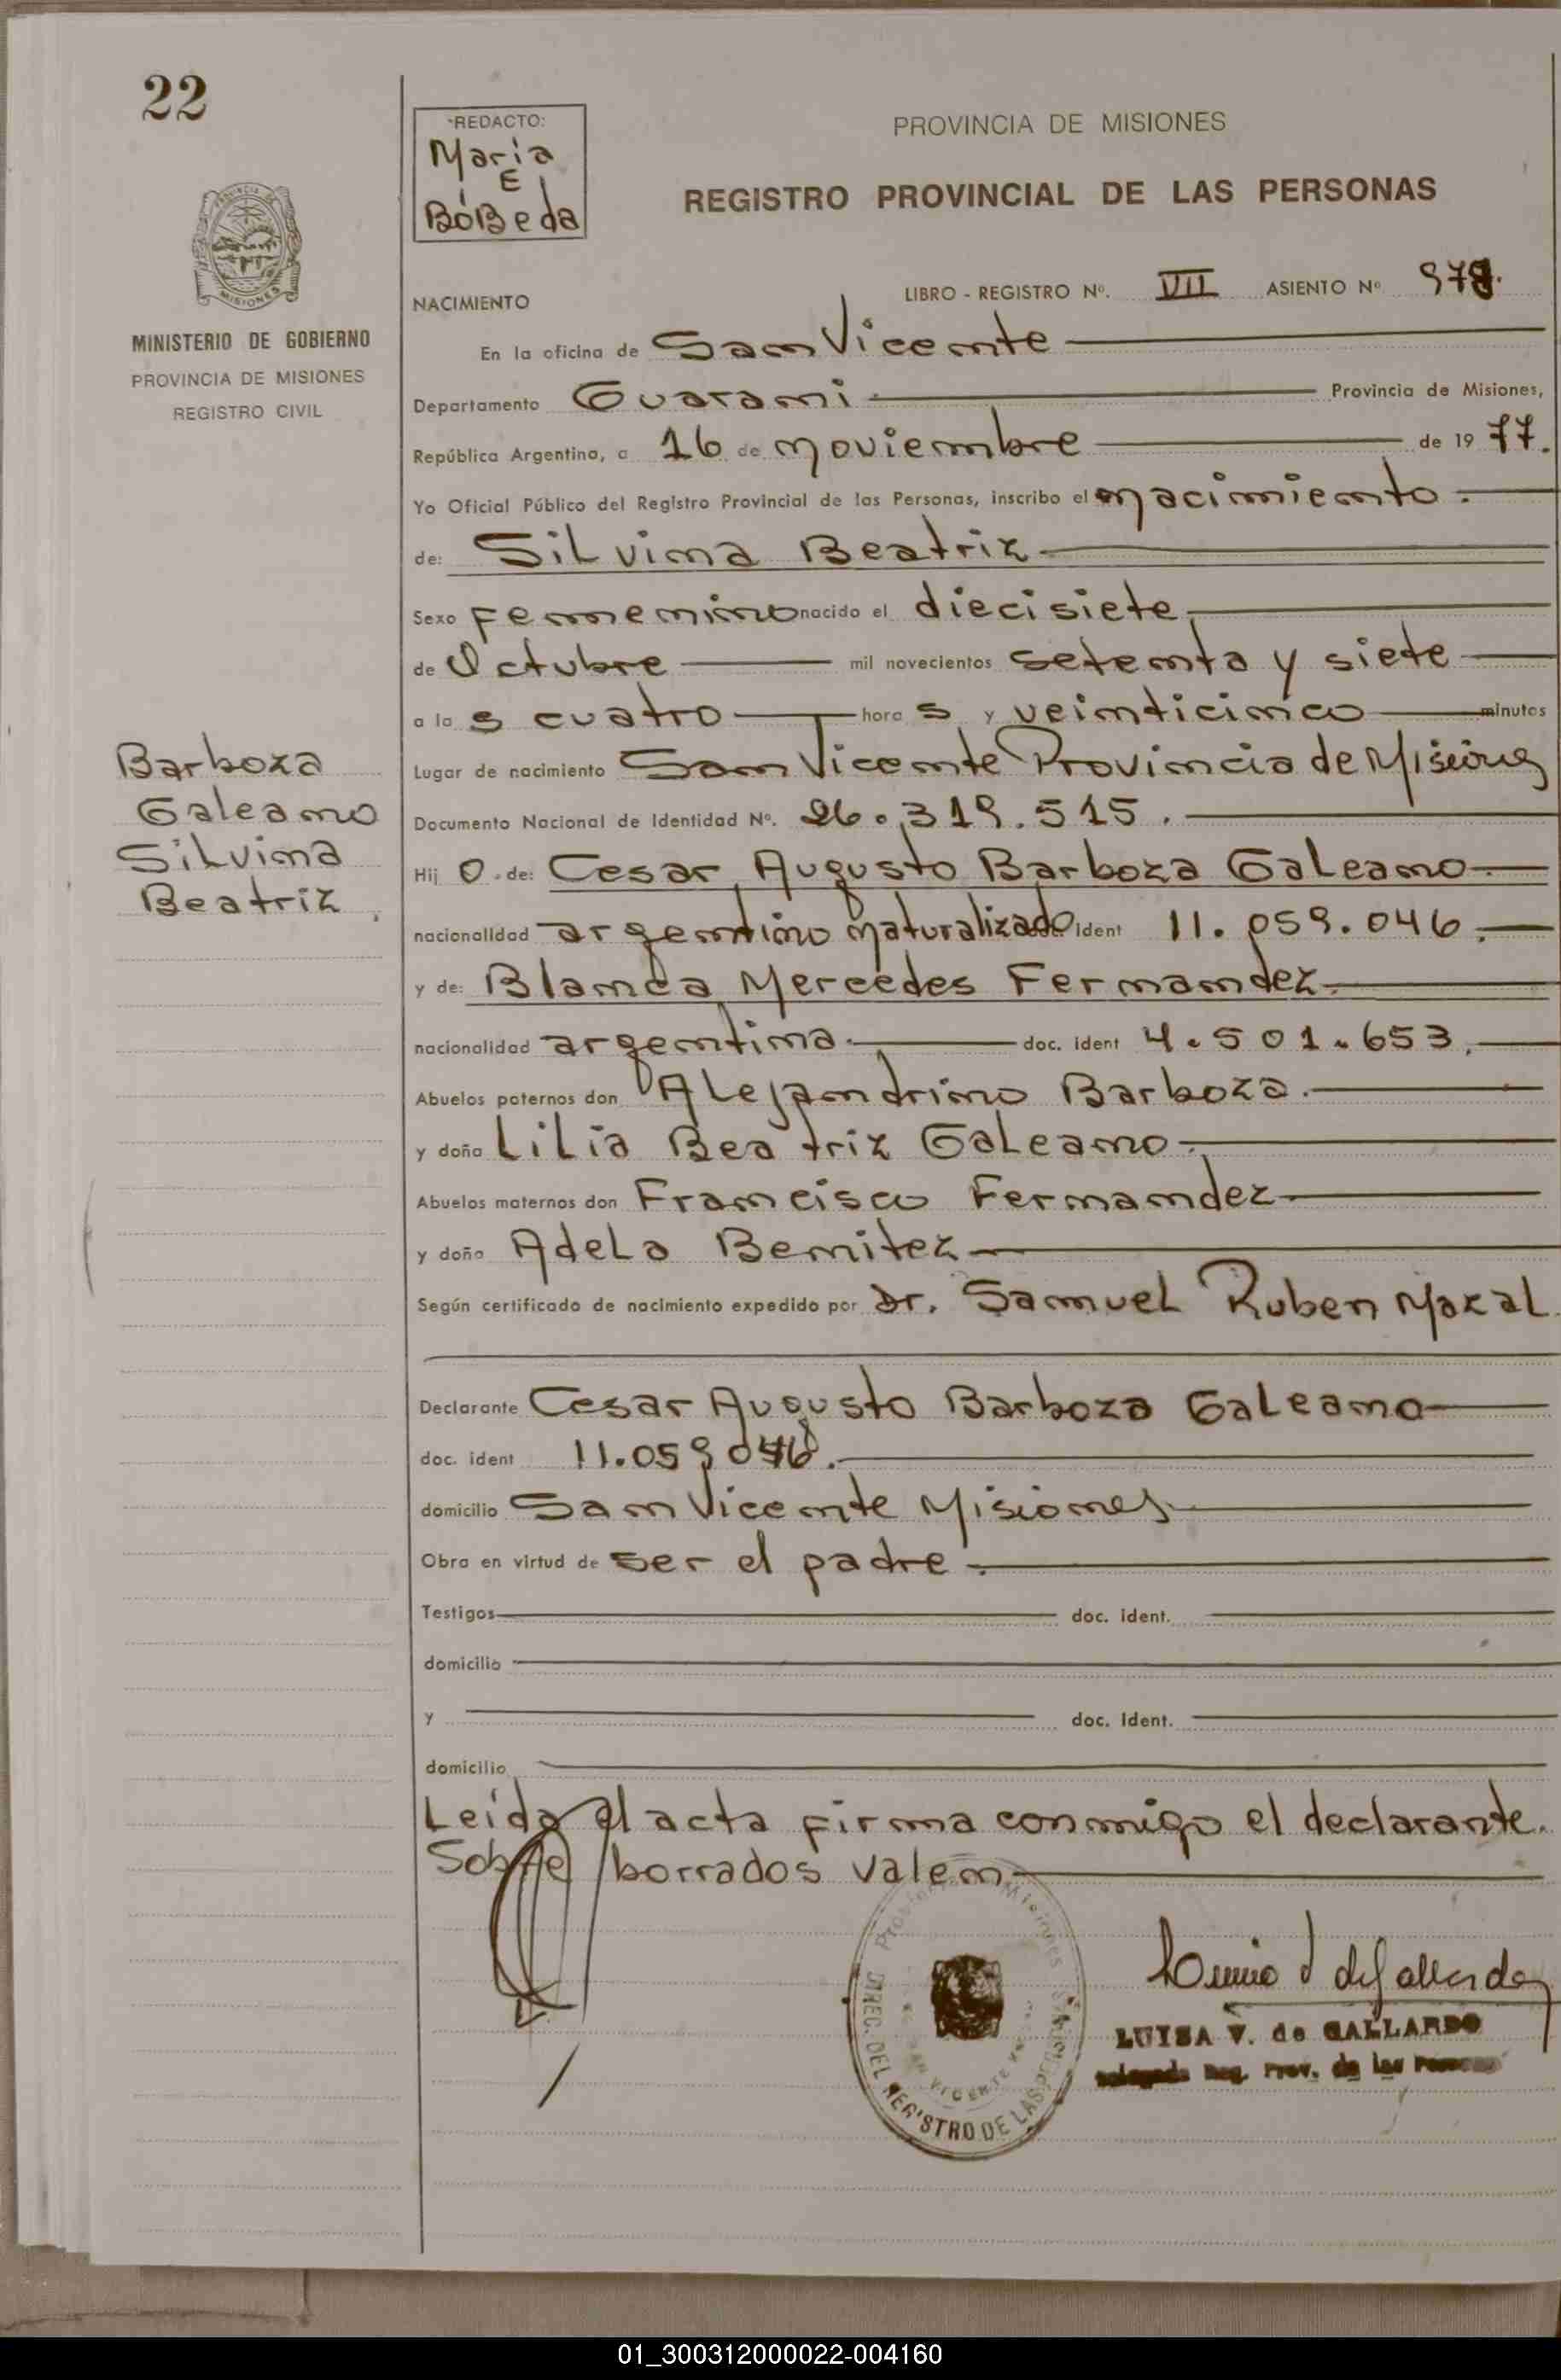 22
REDACTO:
Maria
E
BóBeda
PROVINCIA DE MISIONES
REGISTRO PROVINCIAL DE LAS PERSONAS
MISIONES
MINISTERIO DE GOBIERNO
PROVINCIA DE MISIONES
REGISTRO CIVIL
NACIMIENTO
LIBRO - REGISTRO Nº. VII ASIENTO Nº
En la oficina de San Vicente
Departamento Guarani Provincia de Misiones,
República Argentina, a 16 de noviembre de 1977.
Yo Oficial Público del Registro Provincial de las Personas, inscribo el nacimiento.
de: Silvina Beatriz
Sexo femenino nacido el diecisiete
de Octubre mil novecientos setenta y siete
a las cuatro horas y veinticinco minutos
Lugar de nacimiento San Vicente Provincia de Misiones
Documento Nacional de Identidad Nº. 26.319.515.
Barboza
Galeano
Silvina
Beatriz
Hijo de: Cesar Augusto Barboza Galeano
nacionalidad argentino naturalizado ident 11.059.046.
y de: Blanca Mercedes Fernandez
nacionalidad argentina. doc. ident 4.501.653.
Abuelos paternos don Alejandrino Barboza.
y doña Lilia Beatriz Galeano.
Abuelos maternos don Francisco Fernandez
y doña Adela Benitez
Según certificado de nacimiento expedido por Dr. Samuel Ruben Mazal
Declarante Cesar Augusto Barboza Galeano
doc. ident 11.059046.
domicilio San Vicente Misiones
Obra en virtud de ser el padre.
Testigos doc. ident.
domicilio
y doc. Ident.
domicilio
Leida el acta firma conmigo el declarante.
Sobre borrados valen
Provincia Misiones
DIREC. DEL REGISTRO DE LAS PERSONAS
SAN VICENTE
LUISA V. de GALLARDO
Delegada Reg. Prov. de las Personas
01_300312000022-004160